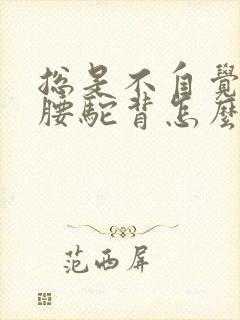 總是不自覺
腰駝背怎麼
范西屏